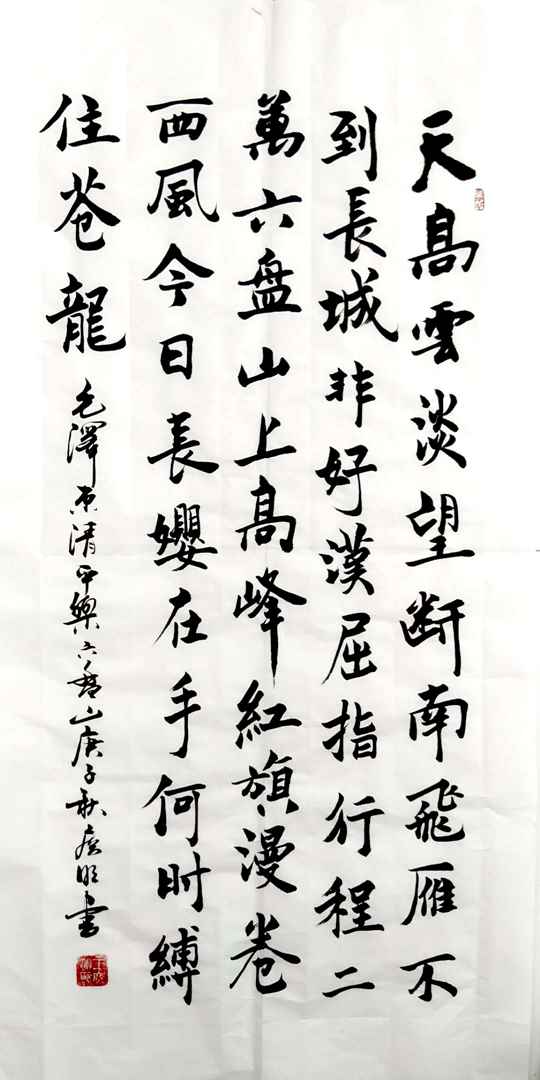 天髙雲淡望断南飛雁不
到長城非好漢屈指行程二
萬六盘山上髙峰紅旗漫卷
西風今日長纓在手何时縛
住苍龍
毛澤东清平樂六盘山庚子秋明書